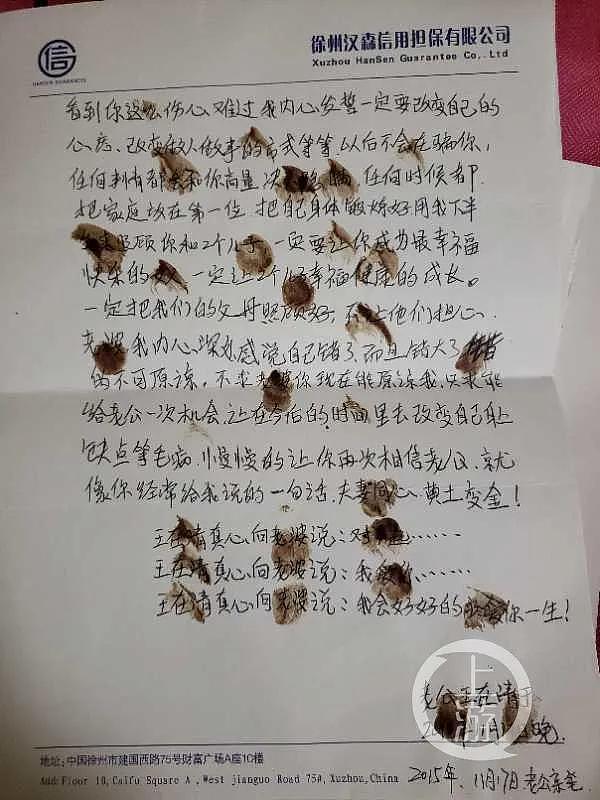 信
HANSEN GUARANTEE
徐州汉森信用担保有限公司
Xuzhou HanSen Guarantee Co,.Ltd
看到你这么伤心难过我内心发誓一定要改变自己的
心态、改变做人做事的方式等等.以后不会在骗你,
任何事情都会和你商量 任何时候都
把家庭放在第一位 把自己身体锻炼好用我下半
照顾你和2个儿子 一定要让你成为最幸福
快乐的 一定让2个儿子幸福健康的成长。
一定把我们的父母照顾好,不让他们担心.
老婆我内心深处感觉自己错了.而且错大了
不可原谅,不求老婆你现在能原谅我,只求能
给老公一次机会,让在今后的时间里去改变自己身上
缺点等毛病.慢慢的让你再次相信老公.就
像你经常给我说的一句话.夫妻同心.黄土变金!
王在清真心向老婆说:对不起……
王在清真心向老婆说:我爱你……
王在清真心向老婆说:我会好好的 爱你一生!
老公王在清于
晚.
上游
地址:中国徐州市建国西路75号财富广场A座10楼
Add:Floor 10,Caifu Square A ,West jianguo Road 75#,Xuzhou,China
2015年,11月17日 老公亲笔